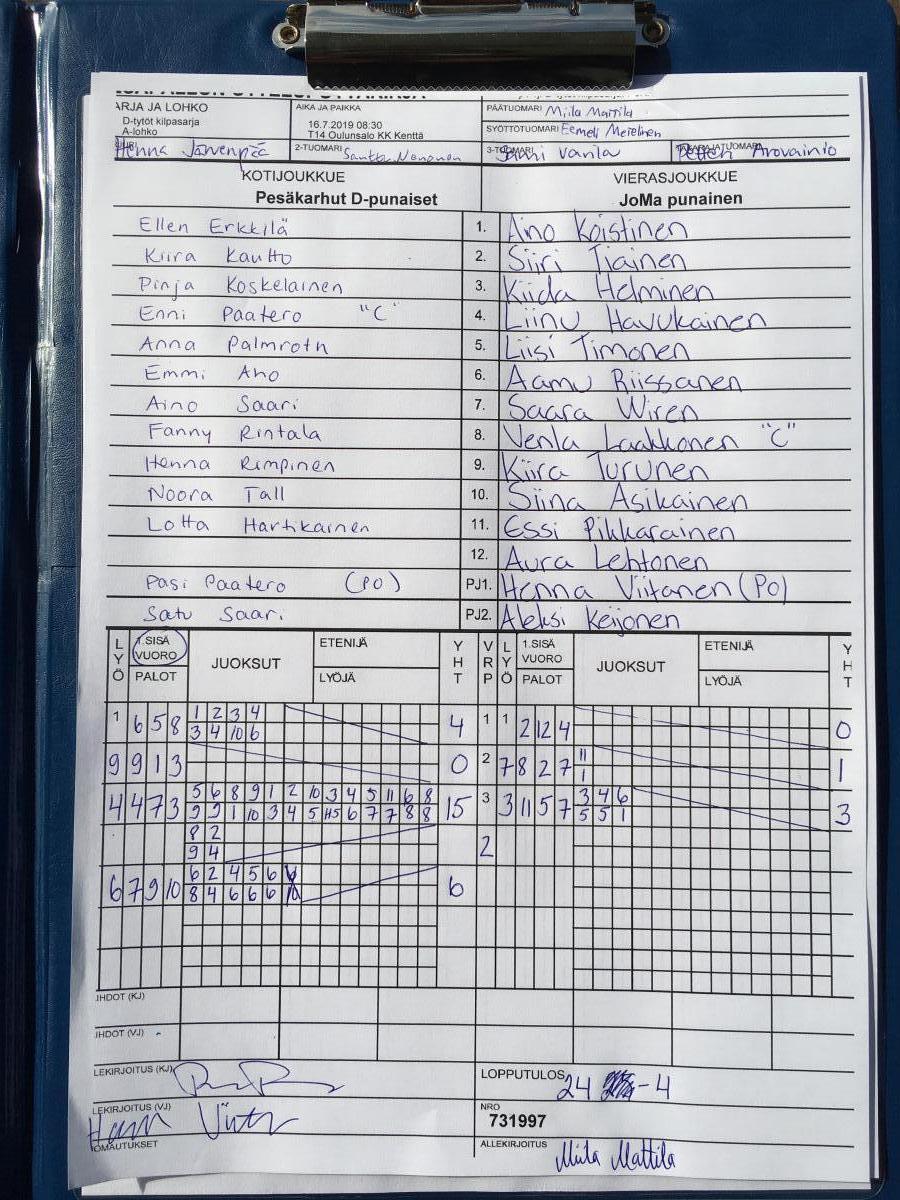 ARJA JA LOHKO AIKA JA PAIKKA PÄÄTUOMARI Miila Mattila
D-tytöt kilpasarja 16.7.2019 08:30 SYÖTTÖTUOMARI Eemeli
A-lohko T14 Oulunsalo KK Kenttä
Henna Järvenpää 2-TUOMARI Santtu 3-TUOMARI Vanila Petteri Arovainio
KOTIJOUKKUE VIERASJOUKKUE
Pesäkarhut D-punaiset JoMa punainen
Ellen Erkkilä 1. Aino Koistinen
Kiira Kautto 2. Siiri Tiainen
Pinja Koskelainen 3. Kiida Helminen
Enni Paatero "C" 4. Liinu Havukainen
Anna Palmroth 5. Liisi Timonen
Emmi Aho 6. Aamu Riissanen
Aino Saari 7. Saara Wiren
Fanny Rintala 8. Venla Laakkonen "C"
Henna Rimpinen 9. Kiira Turunen
Noora Tall 10. Siina Asikainen
Lotta Hartikainen 11. Essi Pikkarainen
12. Aura Lehtonen
Pasi Paatero (PO) PJ1. Henna Viitanen (PO)
Satu Saari PJ2. Aleksi Keijonen
LYÖ 1.SISÄ VUORO PALOT JUOKSUT ETENIJÄ LYÖJÄ YHT VRP LYÖ 1.SISÄ VUORO PALOT JUOKSUT ETENIJÄ LYÖJÄ YHT
1 2 3 4
1 6 5 8 3 4 10 6 4 1 1 2 12 4 0
9 9 1 3 0 2 7 8 2 7 11 1 1
5 6 8 9 1 2 10 3 4 5 11 6 8 3 4 6
4 4 7 3 9 9 1 10 3 4 5 6 7 7 8 8 15 3 3 11 5 7 5 5 1 3
8 2
9 4 2
6 2 4 5 6
6 7 9 10 8 4 6 6 6 6
IHDOT (KJ)
IHDOT (VJ)
LEKIRJOITUS (KJ) LOPPUTULOS 24 - 4
LEKIRJOITUS (VJ) NRO
731997
OMAUTUKSET ALLEKIRJOITUS Miila Mattila